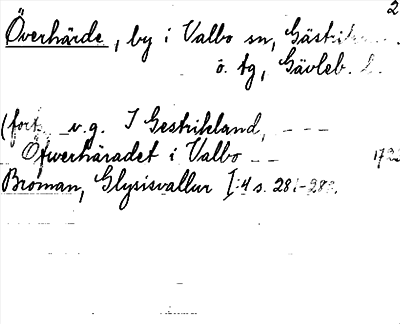 2
Överhärde, by i Valbo sn, Gästrik
ö. tg, Gävleb. l.
(forts. v.g. I Gestrikland, - - -
Öfwerhäradet i Valbo - - 172
Broman, Glysisvallur I:4 s. 281-282.